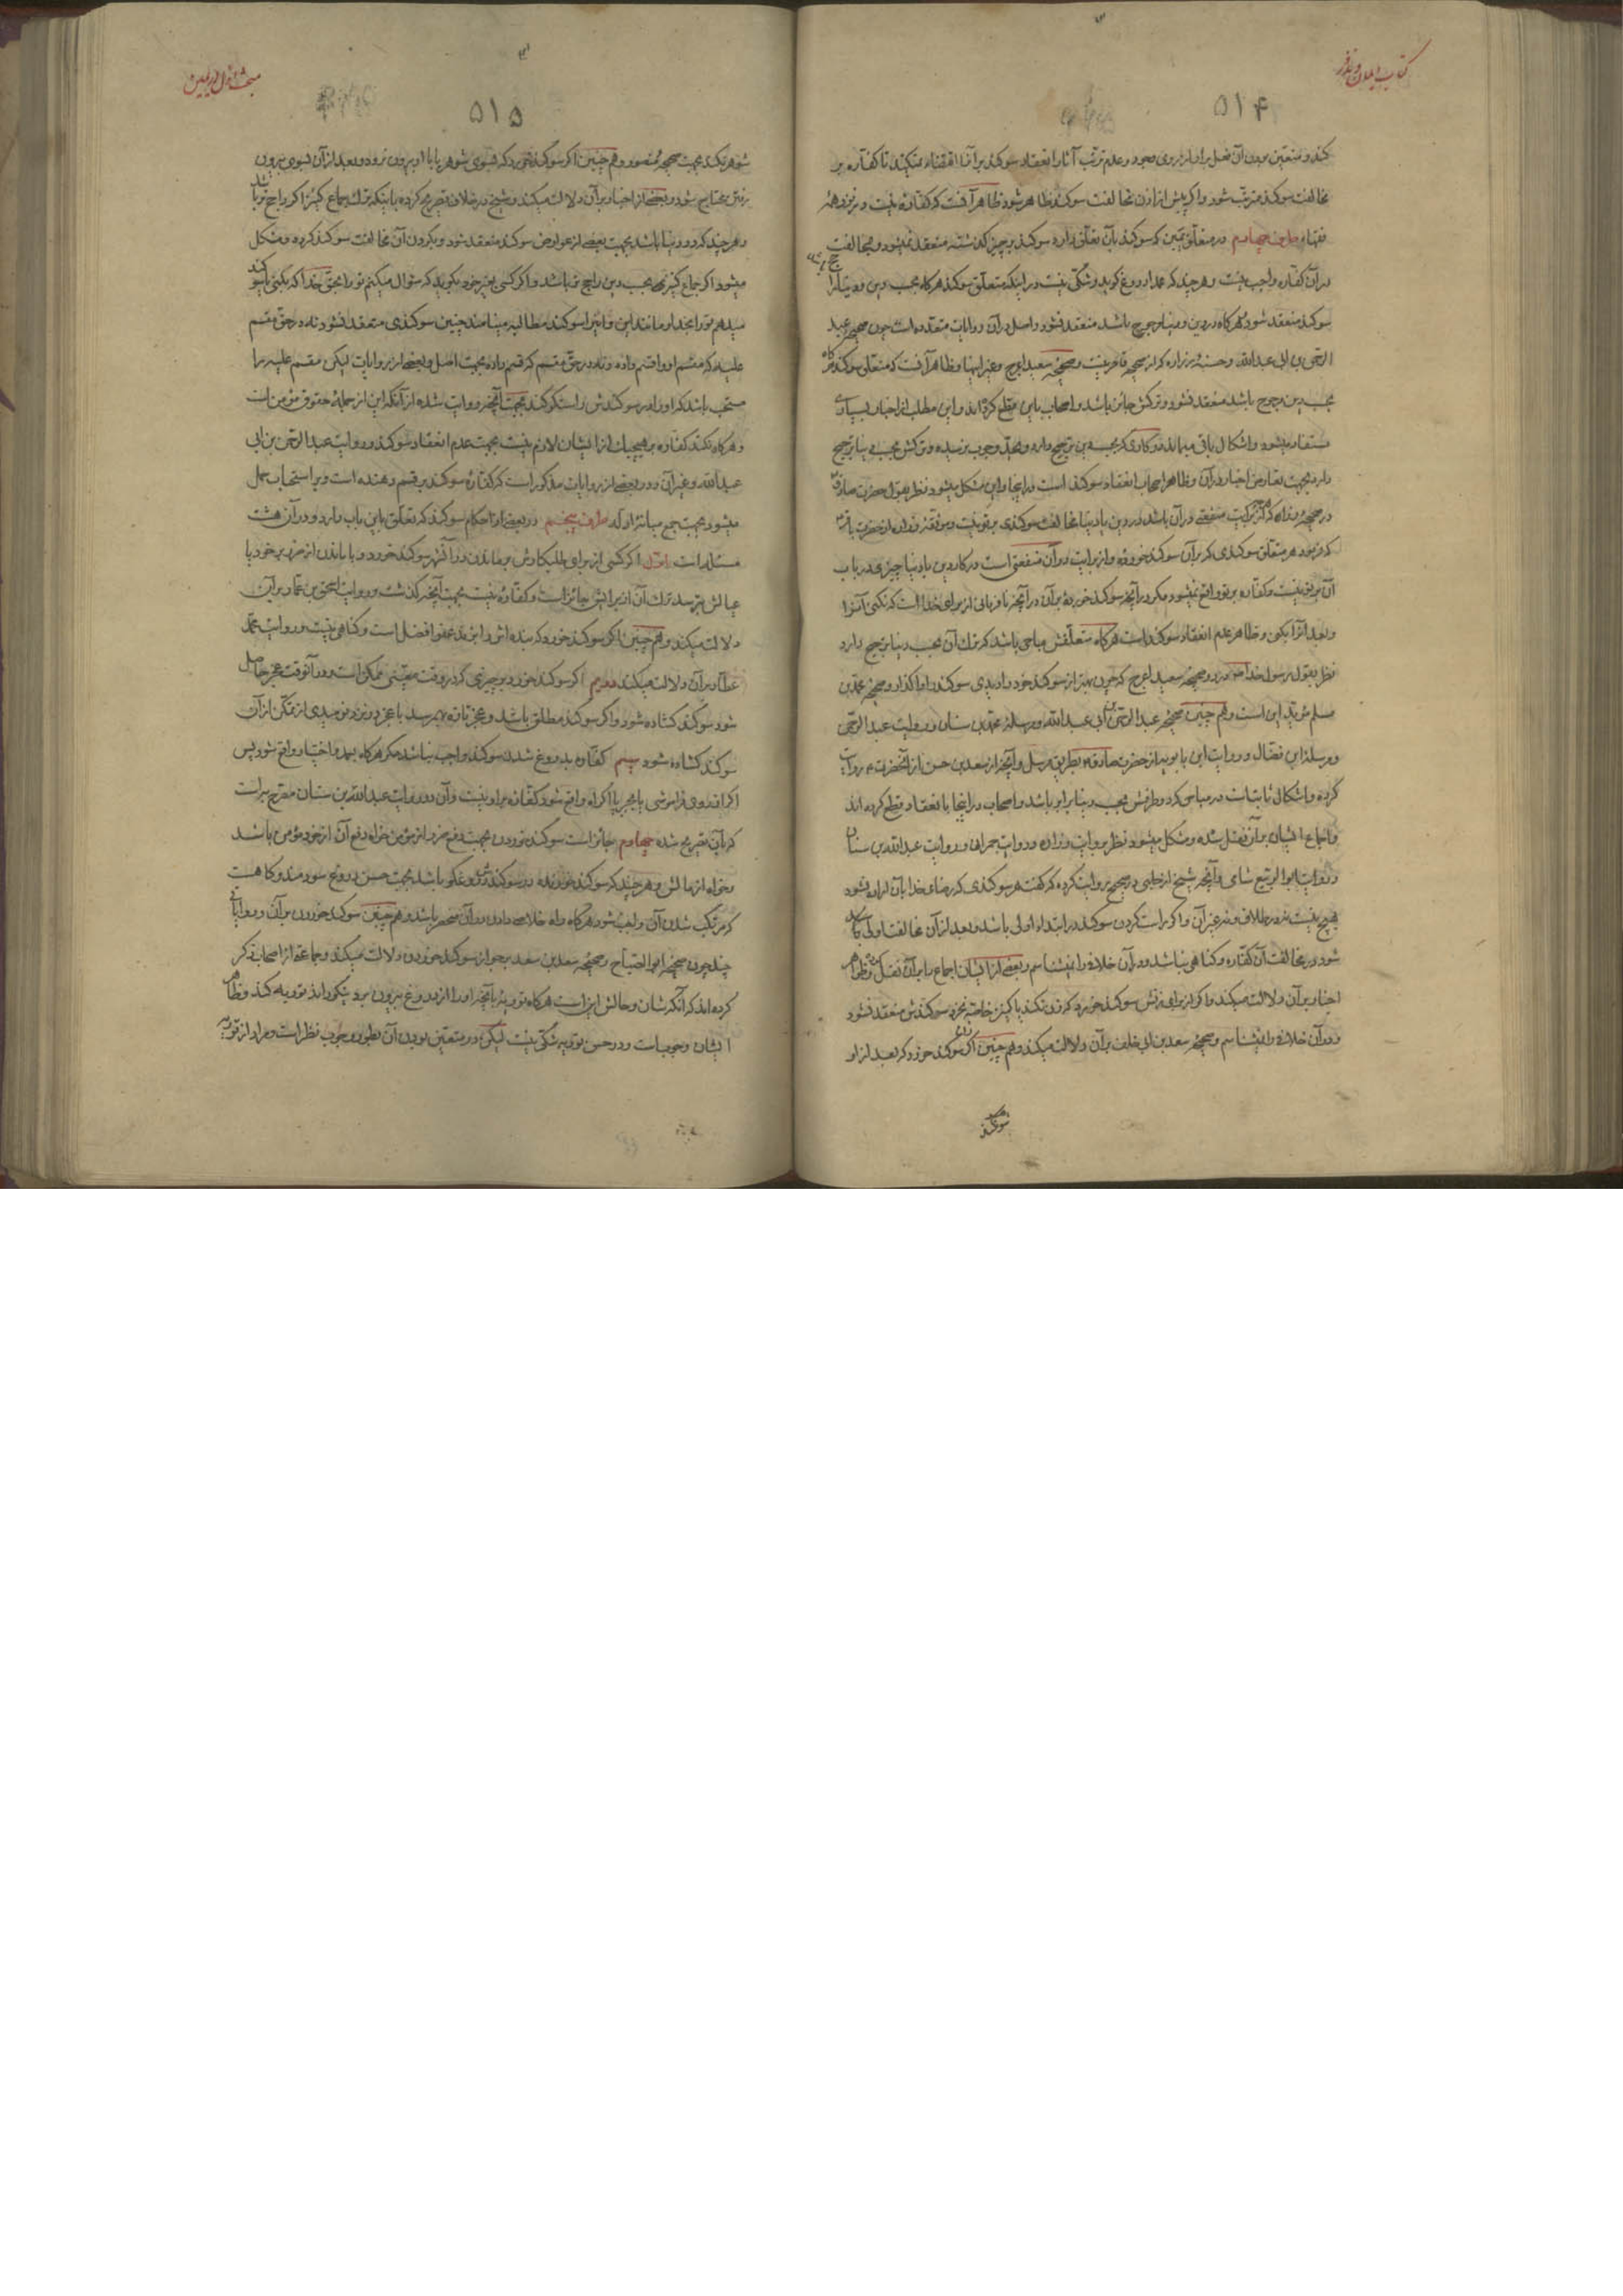 کتاب ایمان و نذر
۵۱۴
کند و متعین بودن آن فعل بر او از روی معهود و عدم ترتب آثار انعقاد سوکند بر آنها اقتضاء نمیکند تا کفاره بر
مخالفت سوکند مترتب شود و اکر پیش از اذن مخالفت سوکند ظاهر شود ظاهر آنست که کفاره نیست و نزد همه
فقهاء طرف چهارم در متعلق یمین که سوکند بآن تعلق دارد سوکند بر چیز کذشته منعقد نمیشود و بمخالفت
در آن کفاره واجب نیست و هر چند که عمدا دروغ کوید و شکی نیست در اینکه متعلق سوکند هر کاه بحسب دین و دنیا
سوکند منعقد شود و هر کاه در دین و دنیا مرجوح باشد منعقد نشود و اصل در آن روایات متعدده است چون صحیحه عبد
الرحمن بن ابی عبدالله و حسنه زراره که از صحیحه قاصر نیست و صحیحه سعید اعرج و غیر اینها و ظاهر آنست که متعلق سوکند
بحسب دین مرجوح باشد منعقد نشود و ترکش جائز باشد و اصحاب باین قطع کرده‌اند و این مطلب از اخبار بسیاری
مستفاد میشود و اشکال باقی میماند در کاری که بحسب دین ترجیح دارد و بحد وجوب نرسیده و ترکش بحسب دنیا ترجیح
دارد بجهت تعارض اخبار در آن و ظاهر اصحاب انعقاد سوکند است در اینجا و این مشکل میشود نظر بقول حضرت صادق
در صحیحه زراره که هر چه برایت منفعتی در آن باشد در دین یا دنیا مخالفت سوکندی بر تو نیست و موثقه زراره از حضرت باقر
که فرمود هر متعلق سوکندی که بر آن سوکند خورده و از برایت در آن منفعتی است در کار دین یا دنیا چیزی در باب
آن بر تو نیست و کفاره بر تو واقع نمیشود مکر در آنچه سوکند خورده بر آن در آنچه نافرمانی از برای خدا است که نکنی آنرا
و بعد آنرا بکنی و ظاهر عدم انعقاد سوکند است هر کاه متعلقش مباحی باشد که ترک آن بحسب دنیا ترجیح دارد
نظر بقول رسول خدا در صحیحه سعید اعرج که چون بهتر از سوکند خود را دیدی سوکند را واکذار و صحیحه محمد بن
مسلم مؤید این است و هم چنین صحیحه عبدالرحمن بن ابی عبدالله و مرسله محمد بن سنان و روایت عبد الرحمن
و مرسله ابن فضال و روایت ابن بابویه از حضرت صادق بطریق مرسل و آنچه از سعد بن حسن از آنحضرت روایت
کرده و اشکالی ثابت است در مباحی که دو طرفش بحسب دنیا برابر باشد و اصحاب در اینجا بانعقاد قطع کرده اند
و اجماع ایشان بر آن نقل شده و مشکل میشود نظر بروایت زراره و روایت حمران و روایت عبدالله بن سنان
و روایت ابوالربیع شامی و آنچه شیخ از حلبی در صحیح روایت کرده که گفت هر سوکندی که رضاء خدا بآن اراده نشود
هیچ نیست نه در طلاق و نه غیر آن و اکر راست کردن سوکند در ابتداء اولی باشد و بعد از آن مخالفت اولی
شود در مخالفت آن کفاره و کناهی نباشد و در آن خلافی را نمیشناسم و بعضی از ایشان اجماع را بر آن نقل کرده و ظواهر
اخبار بر آن دلالت میکند و اکر از برای زنش سوکند خورد که زن نکند یا کنیز خاصه نخرد سوکندش منعقد نشود
و در آن خلافی را نمیشناسم و صحیحه سعد بن ابی خلف بر آن دلالت میکند و هم چنین اکر زن سوکند خورد که بعد از او
سوکند
۵۱۵
شوهر نکند بجهت صحیحه منصور و هم چنین اکر سوکند خورد که بسوی شوهر یا با او بیرون نرود و بعد از آن بسوی بیرون
رفتن محتاج شود و بعضی از اخبار بر آن دلالت میکند و شیخ در خلاف تصریح کرده باینکه ترک جماع کنیز اکر راجح تر باشد
و هر چند که در دنیا باشد بجهت بعضی از عوارض سوکند منعقد شود و بکردن آن مخالفت سوکند کرده و مشکل
میشود اکر جماع کنیز بحسب دین راجح تر باشد و اکر کسی بغیر خود بکوید که سؤال میکنم تو را بحق خدا که بکنی یا
میدهم تو را بخدا و مانند این و اینرا سوکند مطالبه مینامند چنین سوکندی منعقد نشود نه در حق مقسم
علیه که مقسم او را قسم داده و نه در حق مقسم که قسم داده بجهت اصل و بعضی از روایات لیکن مقسم علیه را
مستحب باشد که او را در سوکندش راستکو کند بجهت آنچه روایت شده از آنکه این از جمله حقوق مؤمن است
و هر کاه نکند کفاره بر هیچیک از ایشان لازم نیست بجهت عدم انعقاد سوکند و روایت عبد الرحمن بن ابی
عبدالله و غیر آن و در بعضی از روایات مذکور است که کفاره سوکند بر قسم دهنده است و بر استحباب حمل
میشود بجهت جمع میانه ادله طرف پنجم در بعضی از احکام سوکند که تعلق باین باب دارد و در آن هشت
مسئله است اول اکر کسی از برای طلبکارش بر نماندن در آن شهر سوکند خورد و با ماندن از ضرر بر خود یا
عیالش بترسد ترک آن از برایش جائز است و کفاره نیست بجهت آنچه کذشت و روایت اسحق بن عمار بر این
دلالت میکند و هم چنین اکر سوکند خورد که بنده اش را بزند عفو افضل است و کناهی نیست و روایت محمد
عطار بر آن دلالت میکند دویم اکر سوکند خورد بر چیزی که در وقت معینی ممکن است و در آنوقت عجز حاصل
شود سوکند کشاده شود و اکر سوکند مطلق باشد و عجز تازه بهم رسد با عجز و نزد نومیدی از تمکن از آن
سوکند کشاده شود سیم کفاره بدروغ شدن سوکند واجب نباشد مکر هر کاه بعمد و اختیار واقع شود پس
اکر از روی فراموشی یا بجبر یا اکراه واقع شود کفاره بر او نیست و آن در روایت عبدالله بن سنان مصرح به است
که بآن تصریح شده چهارم جائز است سوکند خوردن بجهت دفع ضرر از مؤمن خواه دفع آن از خود مؤمن باشد
و خواه از مالش و هر چند که سوکند خورنده در سوکندش دروغکو باشد بجهت حسن دروغ سودمند و کاهست
که مرتکب شدن آن واجب شود هر کاه راه خلاصه دادن در آن منحصر باشد و هم چنین سوکند خوردن بر آن و روایاتی
چند چون صحیحه ابوالصباح و صحیحه سعد بن سعد بجواز سوکند خوردن دلالت میکند و جماعة از اصحاب ذکر
کرده اند که آنکه شان و حالش این است هر کاه توریه یا آنچه او را از دروغ بیرون برد نیکو داند توریه کند و ظاهر
ایشان وجوبست و در حسن توریه شکی نیست لیکن در متعین بودن آن بطور وجوب نظر است و مراد از توریه